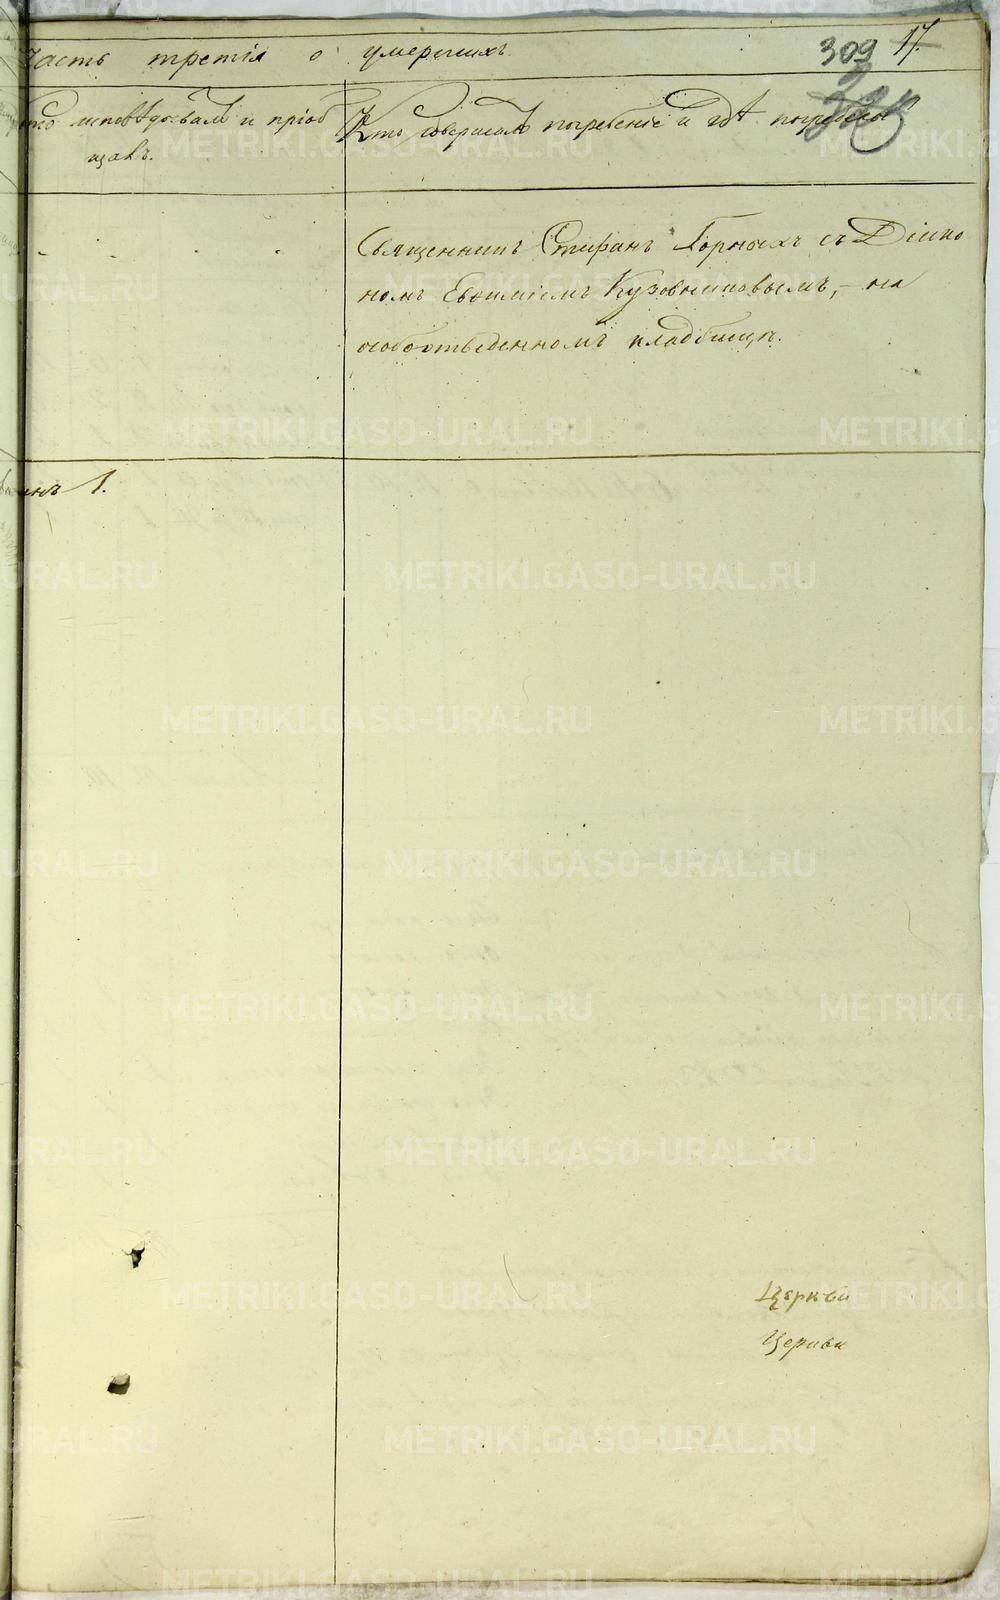 Часть третія о умершихъ
309 17.
Кто исповѣдывалъ и пріоб
щалъ.
Кто совершалъ погребеніе и гдѣ погребены
Священникъ Стефанъ Горныхъ съ Діако
номъ Евѳиміемъ Кузовниковымъ, – на
особоотведенномъ кладбищѣ.
1.
Церкви
Церкви
METRIKI.GASO-URAL.RU